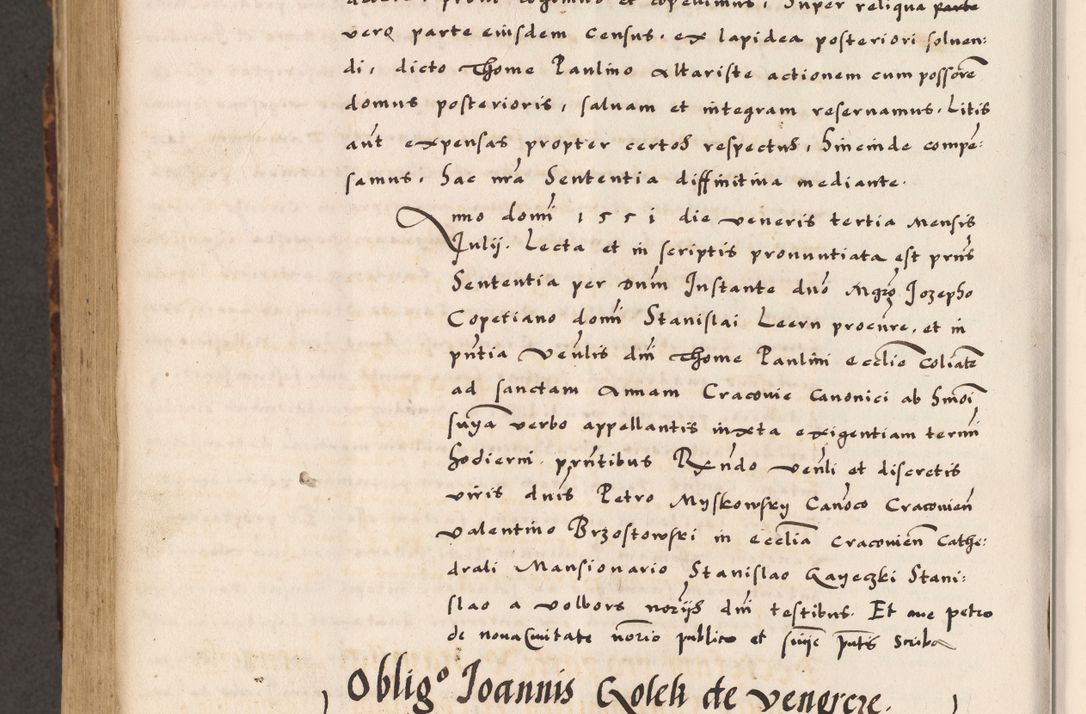 vero parte eiusdem census, ex lapidea posteriori soluen:
di, dicto Thome Paulino Altariste actionem cum possore
domus posterioris, saluam et integram reseruamus. Litis
aut expensas propter certos respectus, hincinde compe:
samus, hac nra Sententia diffinitiua mediante.
Anno domi 1551 die veneris tertia Mensis
Julij. Lecta et in scriptis pronuntiata est prns
Sententia per dnm Instante dno Mgro Jozepho
Copetiano domi Stanislai Leern procure, et in
pntia venlis dni Thome Paulini ecclie Coliate
ad sanctam Annam Cracouie Canonici ab hmoi
snya verbo appellantis iuxta exigentiam termi
hodierni. prntibus Rndo venli et discretis
viris dnis Petro Myskowsky Canoco Cracouien
Valentino Brzostowski in ecclia Cracouien Cathe:
drali Mansionario Stanislao Gayeczki Stani:
slao a volbors norijs dni testibus. Et me petro
de noua Ciuitate norio publico et snye pntis scriba
Obligo Joannis Goleh de venercze.